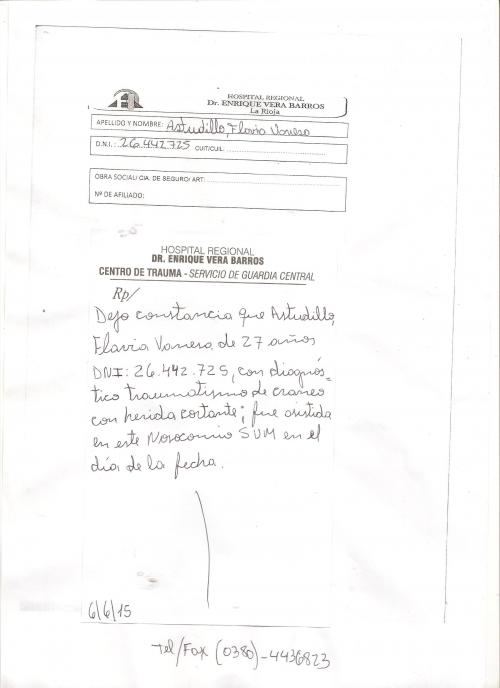 HOSPITAL REGIONAL
Dr. ENRIQUE VERA BARROS
La Rioja
APELLIDO Y NOMBRE: Astudillo, Flavia Vanesa
D.N.I.: 26.442.725 CUIT/CUIL:
OBRA SOCIAL/ CIA. DE SEGURO/ ART:
Nº DE AFILIADO:
HOSPITAL REGIONAL
DR. ENRIQUE VERA BARROS
CENTRO DE TRAUMA - SERVICIO DE GUARDIA CENTRAL
Rp/
Dejo constancia que Astudillo,
Flavia Vanesa de 27 años
DNI: 26.442.725, con diagnós-
tico traumatismo de craneo
con herida cortante; fue asistida
en este Nosocomio SUM en el
día de la fecha.
6/6/15
Tel/Fax (0380)-4436823